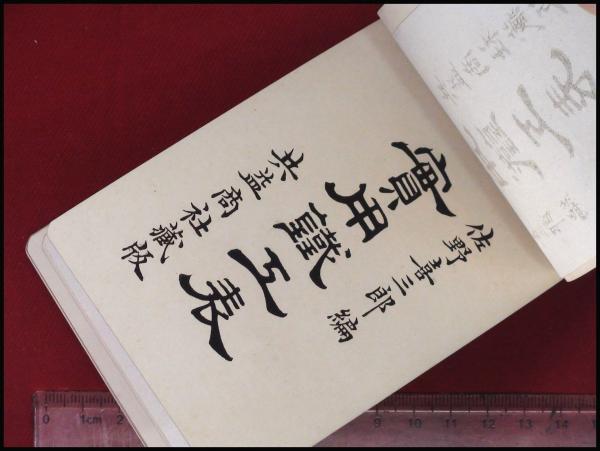 佐野喜三郎編
實用鐵工表
共益商社藏版
0 1cm 2 9 10 11 12 13 14